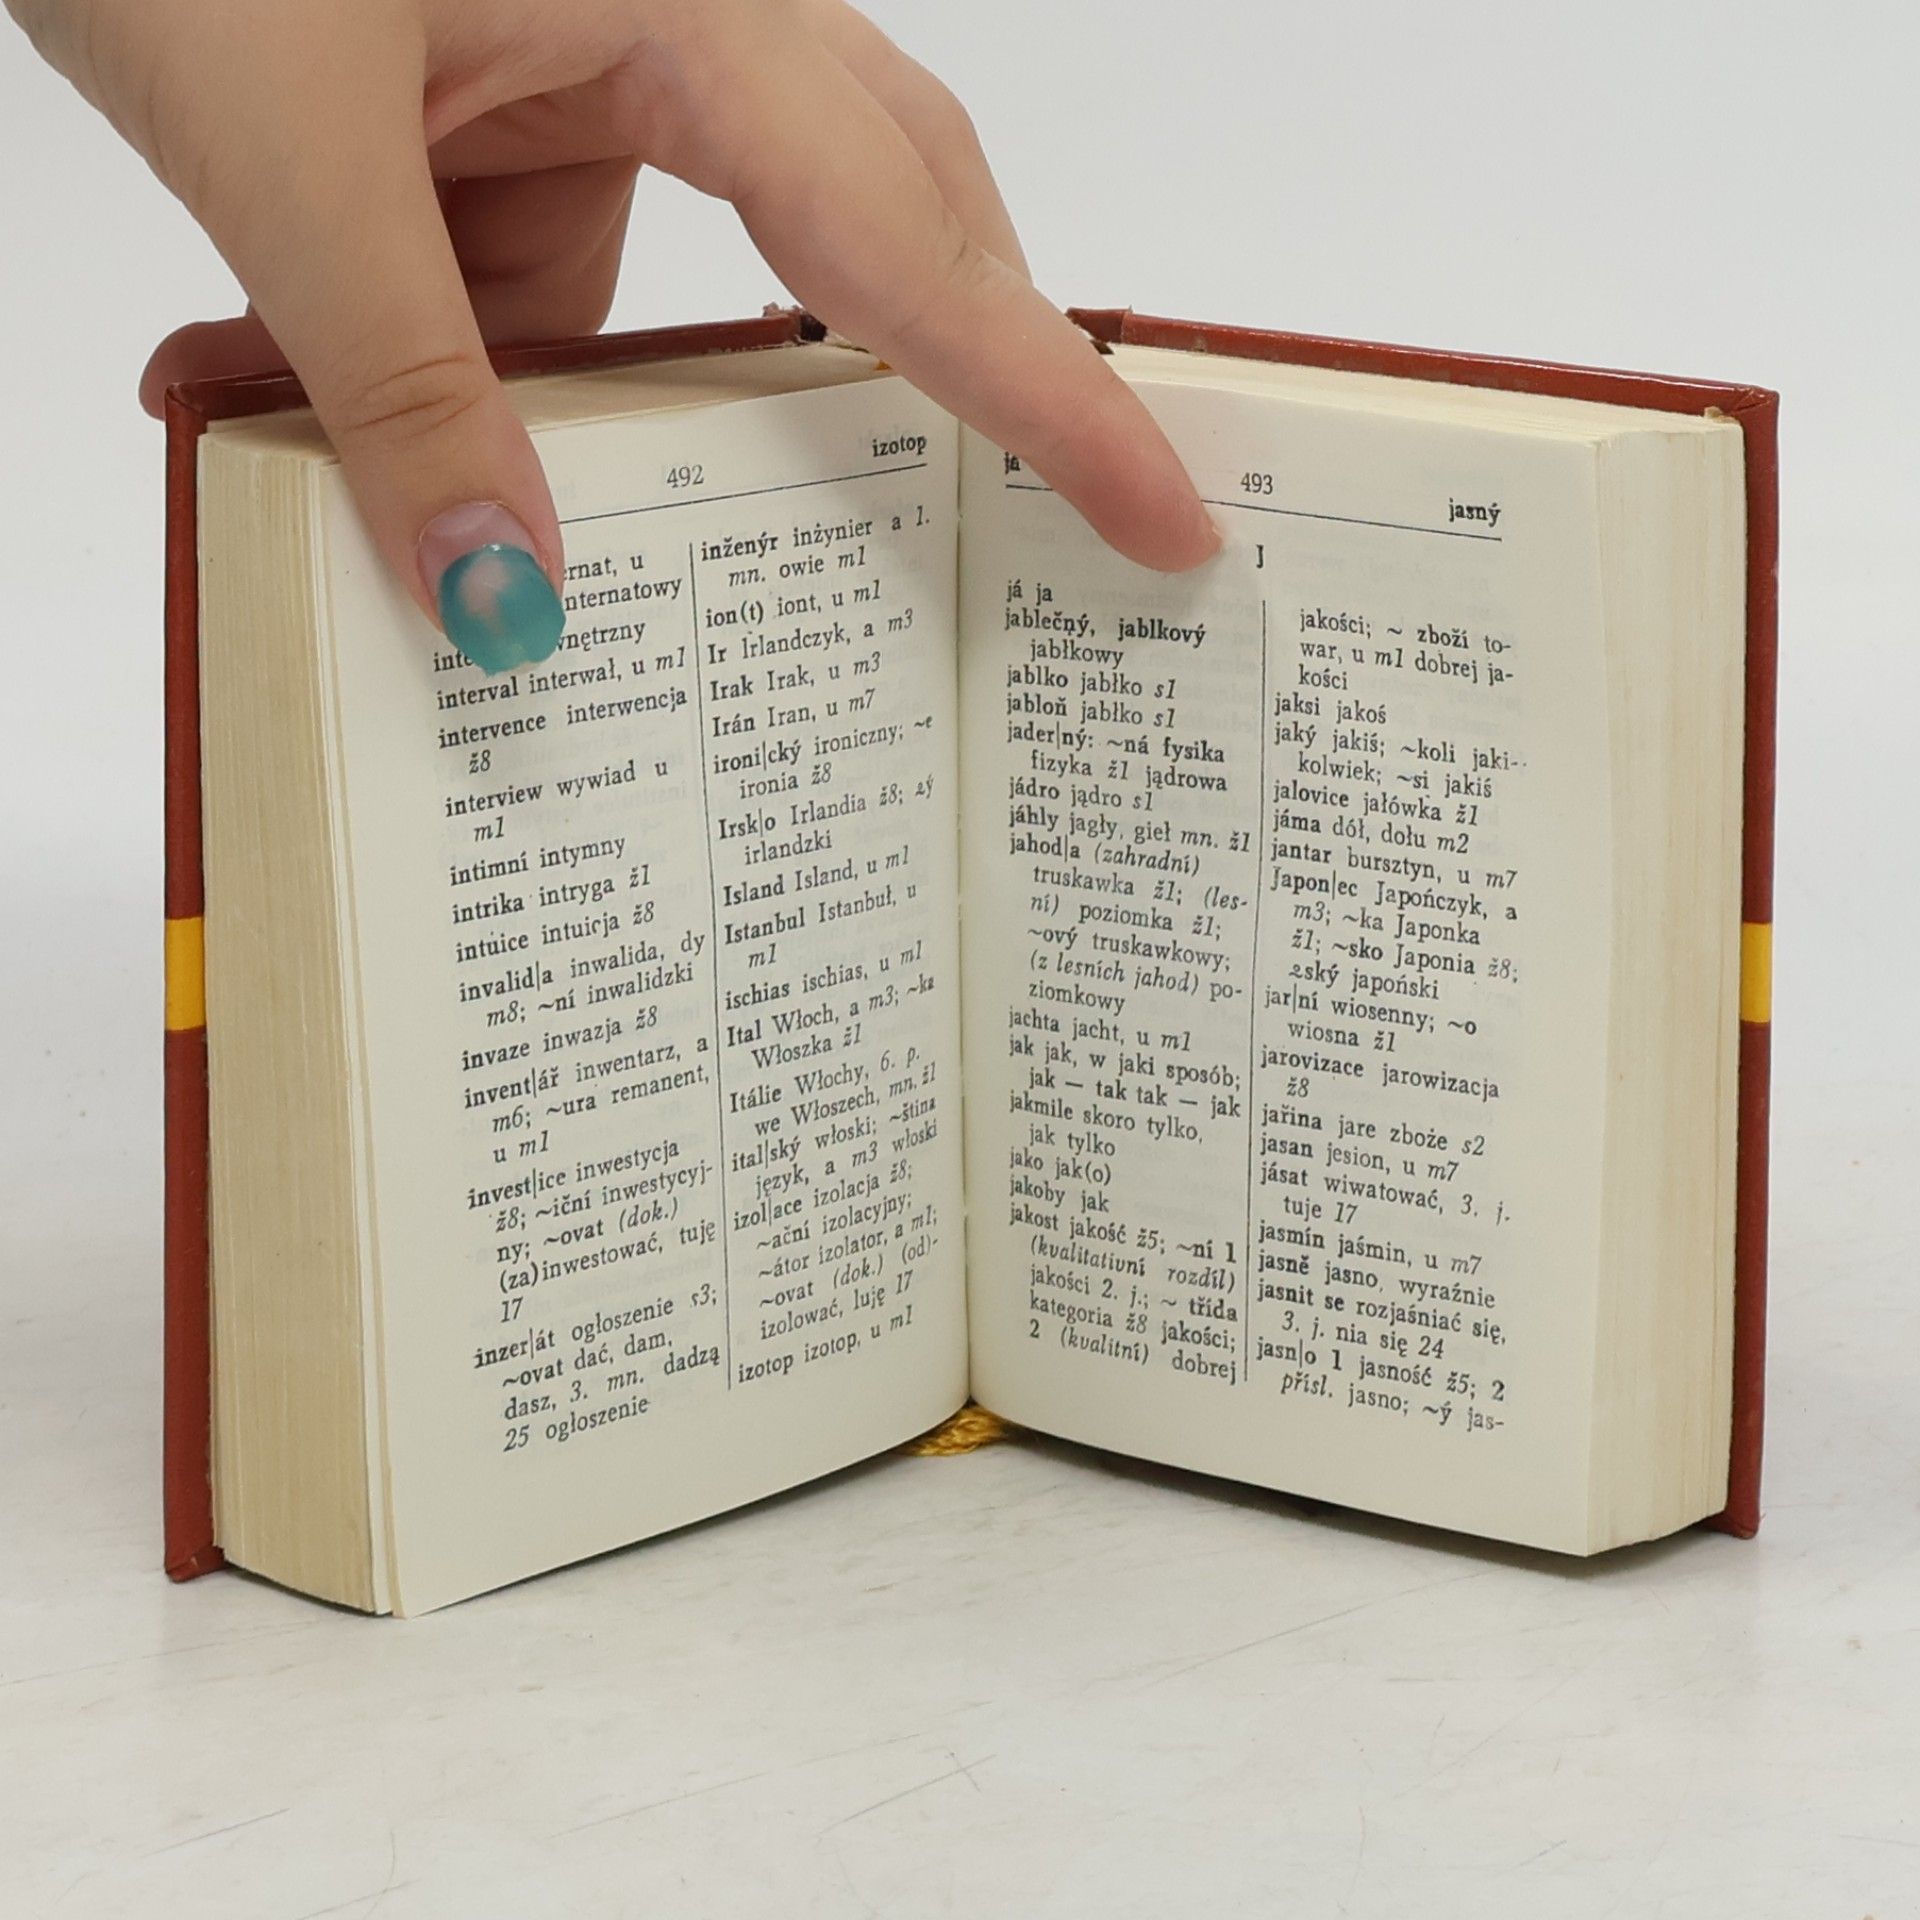 492
izotop
ernat, u
nternatowy
wnętrzny
interval interwał, u m1
intervence interwencja
ž8
interview wywiad u
m1
intimní intymny
intrika intryga ž1
intuice intuicja ž8
invalid|a inwalida, dy
m8; ~ní inwalidzki
invaze inwazja ž8
invent|ář inwentarz, a
m6; ~ura remanent,
u m1
invest|ice inwestycja
ž8; ~iční inwestycyj-
ny; ~ovat (dok.)
(za)inwestować, tuję
17
inzer|át ogłoszenie s3;
~ovat dać, dam,
dasz, 3. mn. dadzą
25 ogłoszenie
inženýr inżynier a 1.
mn. owie m1
ion(t) iont, u m1
Ir Irlandczyk, a m3
Irak Irak, u m3
Irán Iran, u m7
ironi|cký ironiczny; ~e
ironia ž8
Irsk|o Irlandia ž8; ~ý
irlandzki
Island Island, u m1
Istanbul Istanbuł, u
m1
ischias ischias, u m1
Ital Włoch, a m3; ~ka
Włoszka ž1
Itálie Włochy, 6. p.
we Włoszech, mn. ž1
ital|ský włoski; ~ština
język, a m3 włoski
izol|ace izolacja ž8;
~ační izolacyjny;
~átor izolator, a m1;
~ovat (dok.) (od)-
izolować, luję 17
izotop izotop, u m1
já
493
jasný
J
já ja
jablečný, jablkový
jabłkowy
jablko jabłko s1
jabloň jabłko s1
jader|ný: ~ná fysika
fizyka ž1 jądrowa
jádro jądro s1
jáhly jagły, gieł mn. ž1
jahod|a (zahradní)
truskawka ž1; (les-
ní) poziomka ž1;
~ový truskawkowy;
(z lesních jahod) po-
ziomkowy
jachta jacht, u m1
jak jak, w jaki sposób;
jak — tak tak — jak
jakmile skoro tylko,
jak tylko
jako jak(o)
jakoby jak
jakost jakość ž5; ~ní 1
(kvalitativní rozdíl)
jakości 2. j.; ~ třída
kategoria ž8 jakości;
2 (kvalitní) dobrej
jakości; ~ zboží to-
war, u m1 dobrej ja-
kości
jaksi jakoś
jaký jakiś; ~koli jaki-
kolwiek; ~si jakiś
jalovice jałówka ž1
jáma dół, dołu m2
jantar bursztyn, u m7
Japon|ec Japończyk, a
m3; ~ka Japonka
ž1; ~sko Japonia ž8;
~ský japoński
jar|ní wiosenny; ~o
wiosna ž1
jarovizace jarowizacja
ž8
jařina jare zboże s2
jasan jesion, u m7
jásat wiwatować, 3. j.
tuje 17
jasmín jaśmin, u m7
jasně jasno, wyraźnie
jasnit se rozjaśniać się,
3. j. nia się 24
jasn|o 1 jasność ž5; 2
přísl. jasno; ~ý jas-